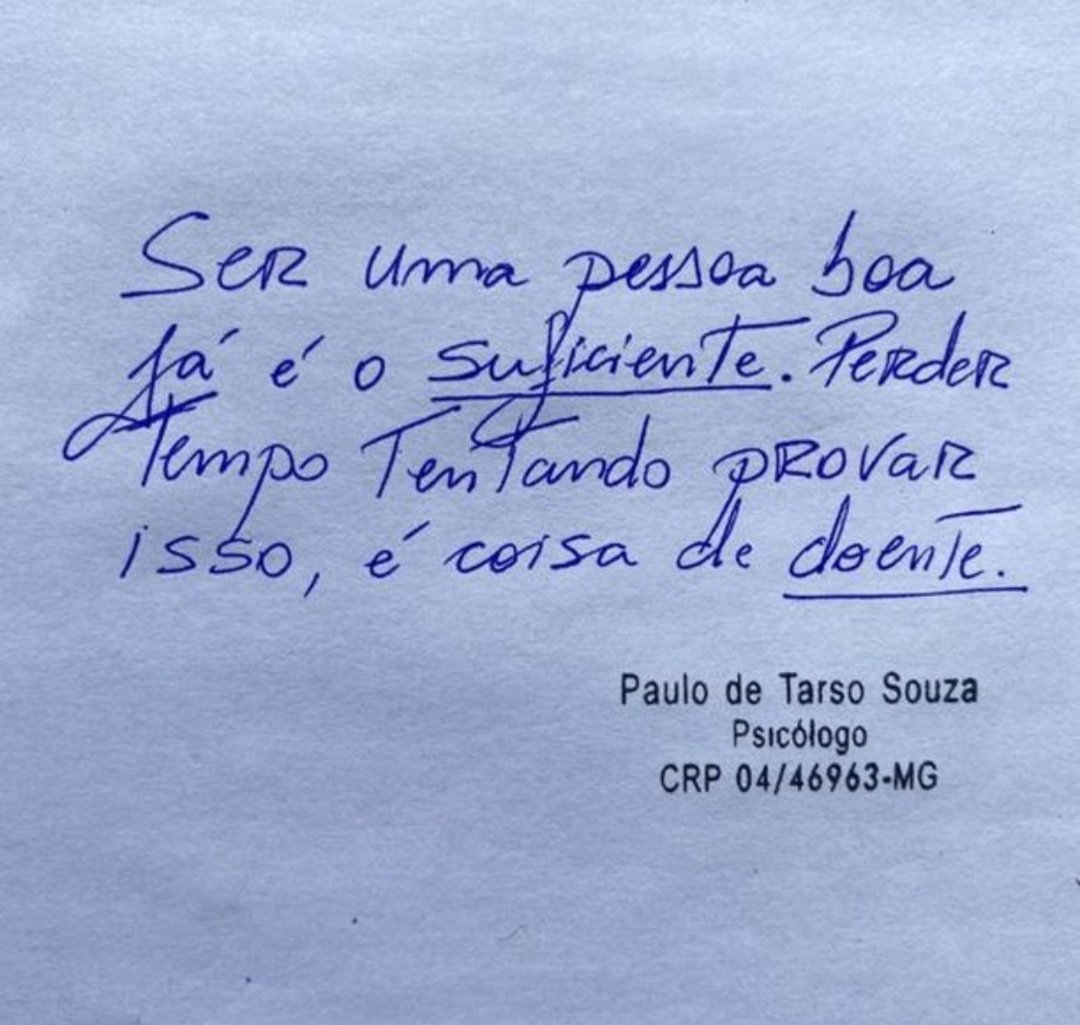 Ser uma pessoa boa
já é o suficiente. Perder
tempo tentando provar
isso, é coisa de doente.
Paulo de Tarso Souza
Psicólogo
CRP 04/46963-MG